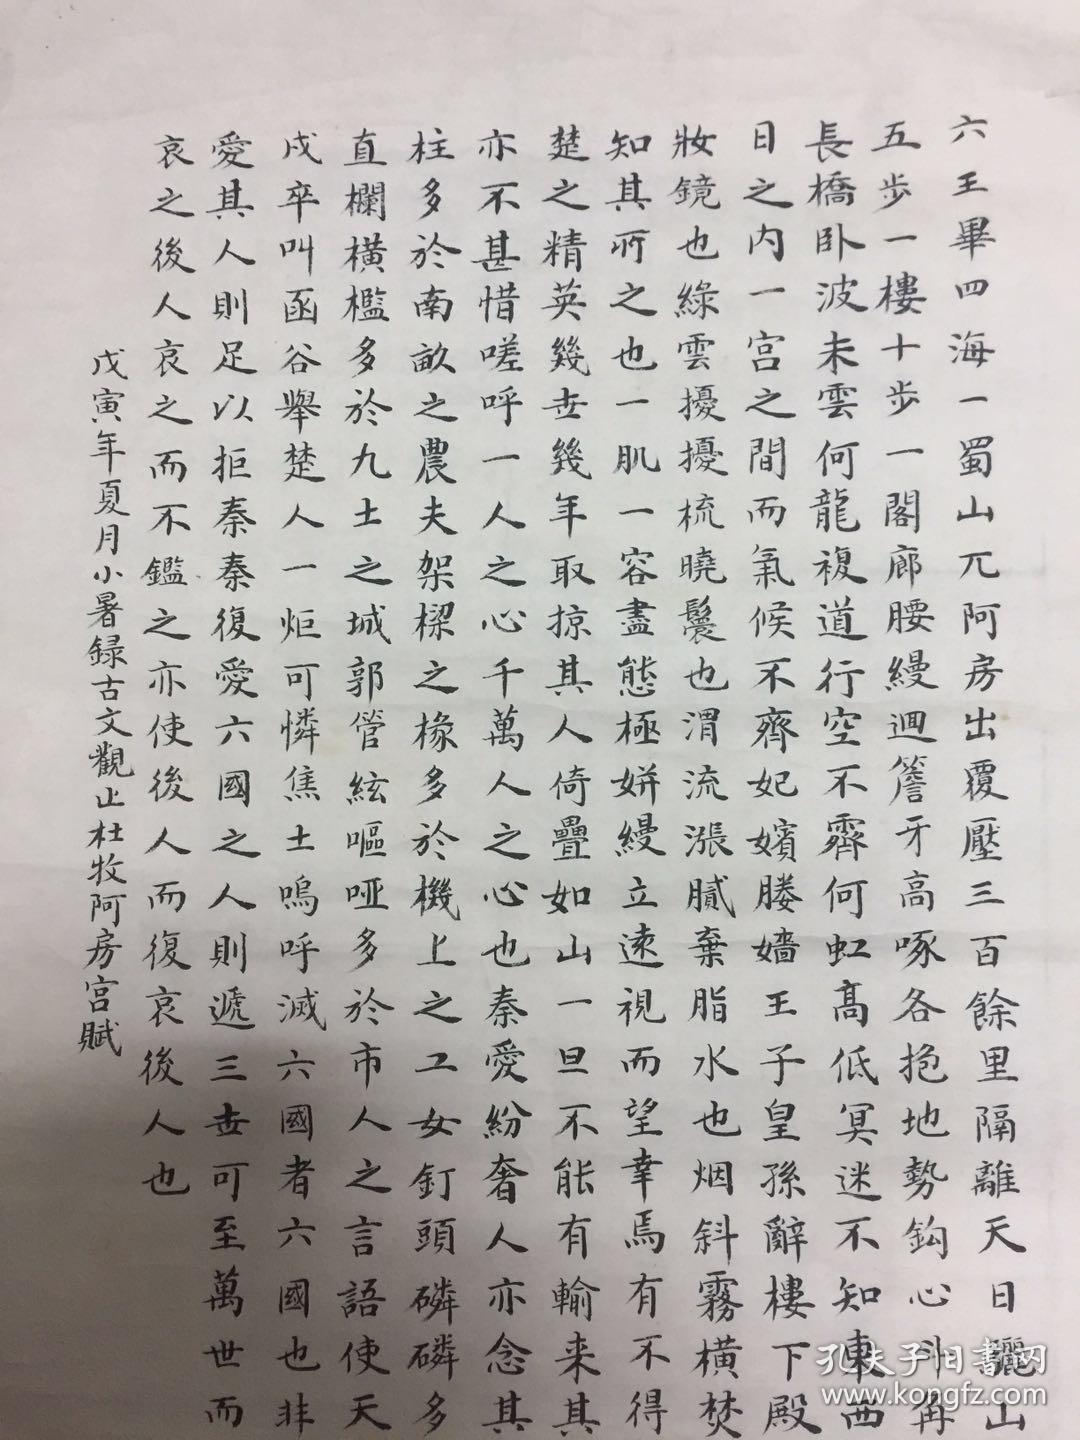 六王畢四海一蜀山兀阿房出覆壓三百餘里隔離天日驪山
五步一樓十步一閣廊腰縵迴簷牙高啄各抱地勢鈎心鬥角
長橋卧波未雲何龍複道行空不霽何虹高低冥迷不知東西
日之内一宫之間而氣候不齊妃嬪媵嬙王子皇孫辭樓下殿
妝鏡也綠雲擾擾梳曉鬟也渭流漲膩棄脂水也烟斜霧橫焚
知其所之也一肌一容盡態極妍縵立遠視而望幸焉有不得
楚之精英幾世幾年取掠其人倚疊如山一旦不能有輸来其
亦不甚惜嗟呼一人之心千萬人之心也秦愛紛奢人亦念其
柱多於南畝之農夫架樑之椽多於機上之工女釘頭磷磷多
直欄橫檻多於九土之城郭管絃嘔啞多於市人之言語使天
戍卒叫函谷舉楚人一炬可憐焦土嗚呼滅六國者六國也非
愛其人則足以拒秦秦復愛六國之人則遞三世可至萬世而
哀之後人哀之而不鑑之亦使後人而復哀後人也
戊寅年夏月小暑録古文觀止杜牧阿房宫賦
孔夫子旧書网
www.kongfz.com